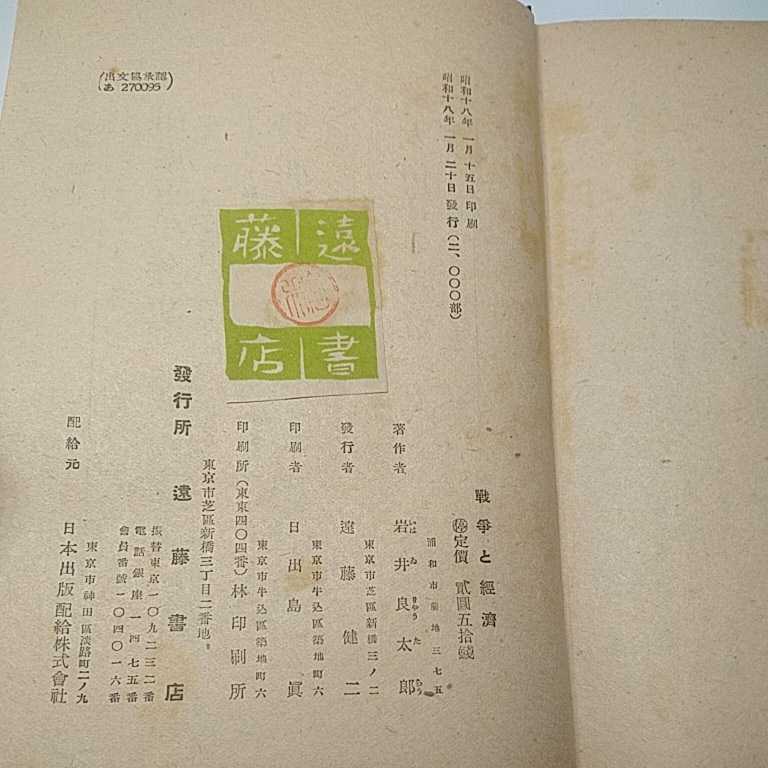 昭和十八年一月十五日印刷
昭和十八年一月二十日發行(二、〇〇〇部)
(出文協承認
あ 270095)
遠藤
書店
戰爭と經濟
停定價 貳圓五拾錢
浦和市 地三七五
著作者 岩井良太郎
いはゐりやうたらう
東京市芝區新橋三ノ二
發行者 遠藤健二
東京市牛込區築地町六
印刷者 日出島眞
東京市牛込區築地町六
印刷所(東東四〇四番)林印刷所
東京市芝區新橋三丁目二番地。
發行所 遠藤書店
振替東京一〇九二三二番
電話銀座一四七五番
會員番號一〇四〇一六番
東京市神田區淡路町二ノ九
配給元 日本出版配給株式會社